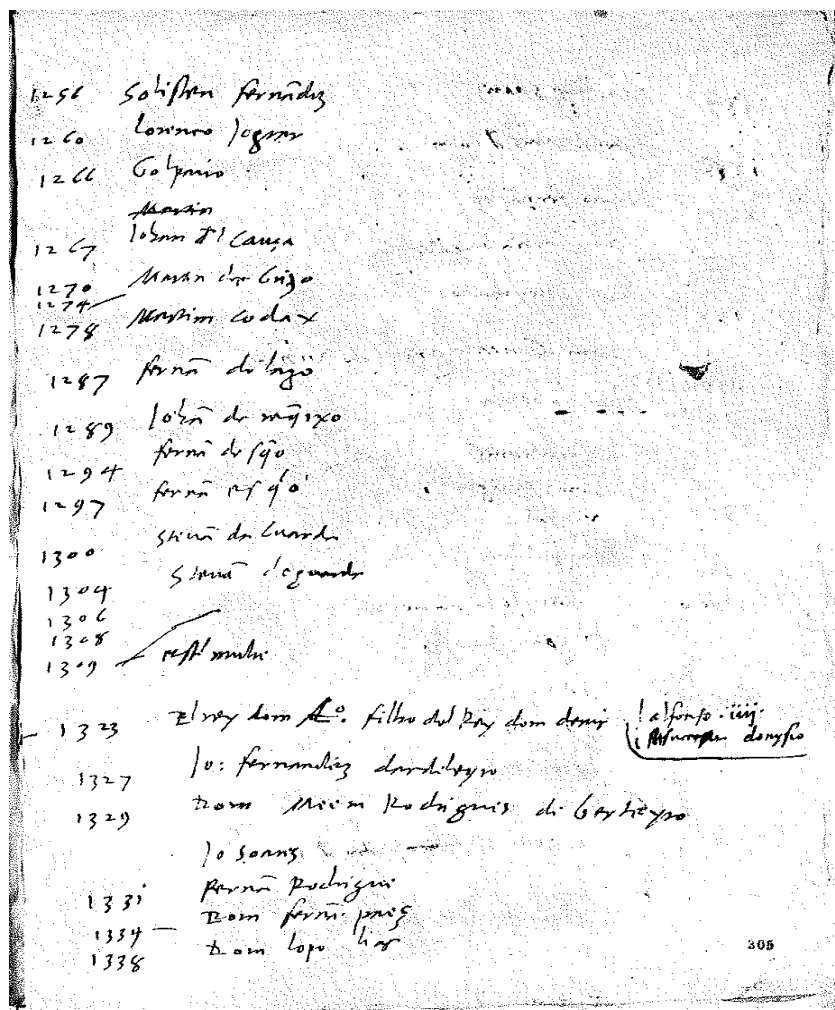 1256 Solisten fernãdiz
1260 Lorenco Jograr
1266 Golparro
Martin
1267 Iohan d'l Canga
1270 Martin de Giizo
1274
1278 Martim Codax
1287 fernã do lago
1289 Iohã de req̄ixo
fernã de sq̄o
1294
1297 fernã esq̄o
1300 Steuã da Guarda
1304 Steuã daguarda
1306
1308
1309 est
1323 El rey dom Aº. filho del Rey dom denis | alfonso .iiij.
donysio
1327 Jo: fernandiz dardeleyro
1329 Dom Meem Rodriguis de
Jo Soarez
1331 Fernã Rodrigui
1334 Dom fernã. paez
1338 Dom lopo lias
305